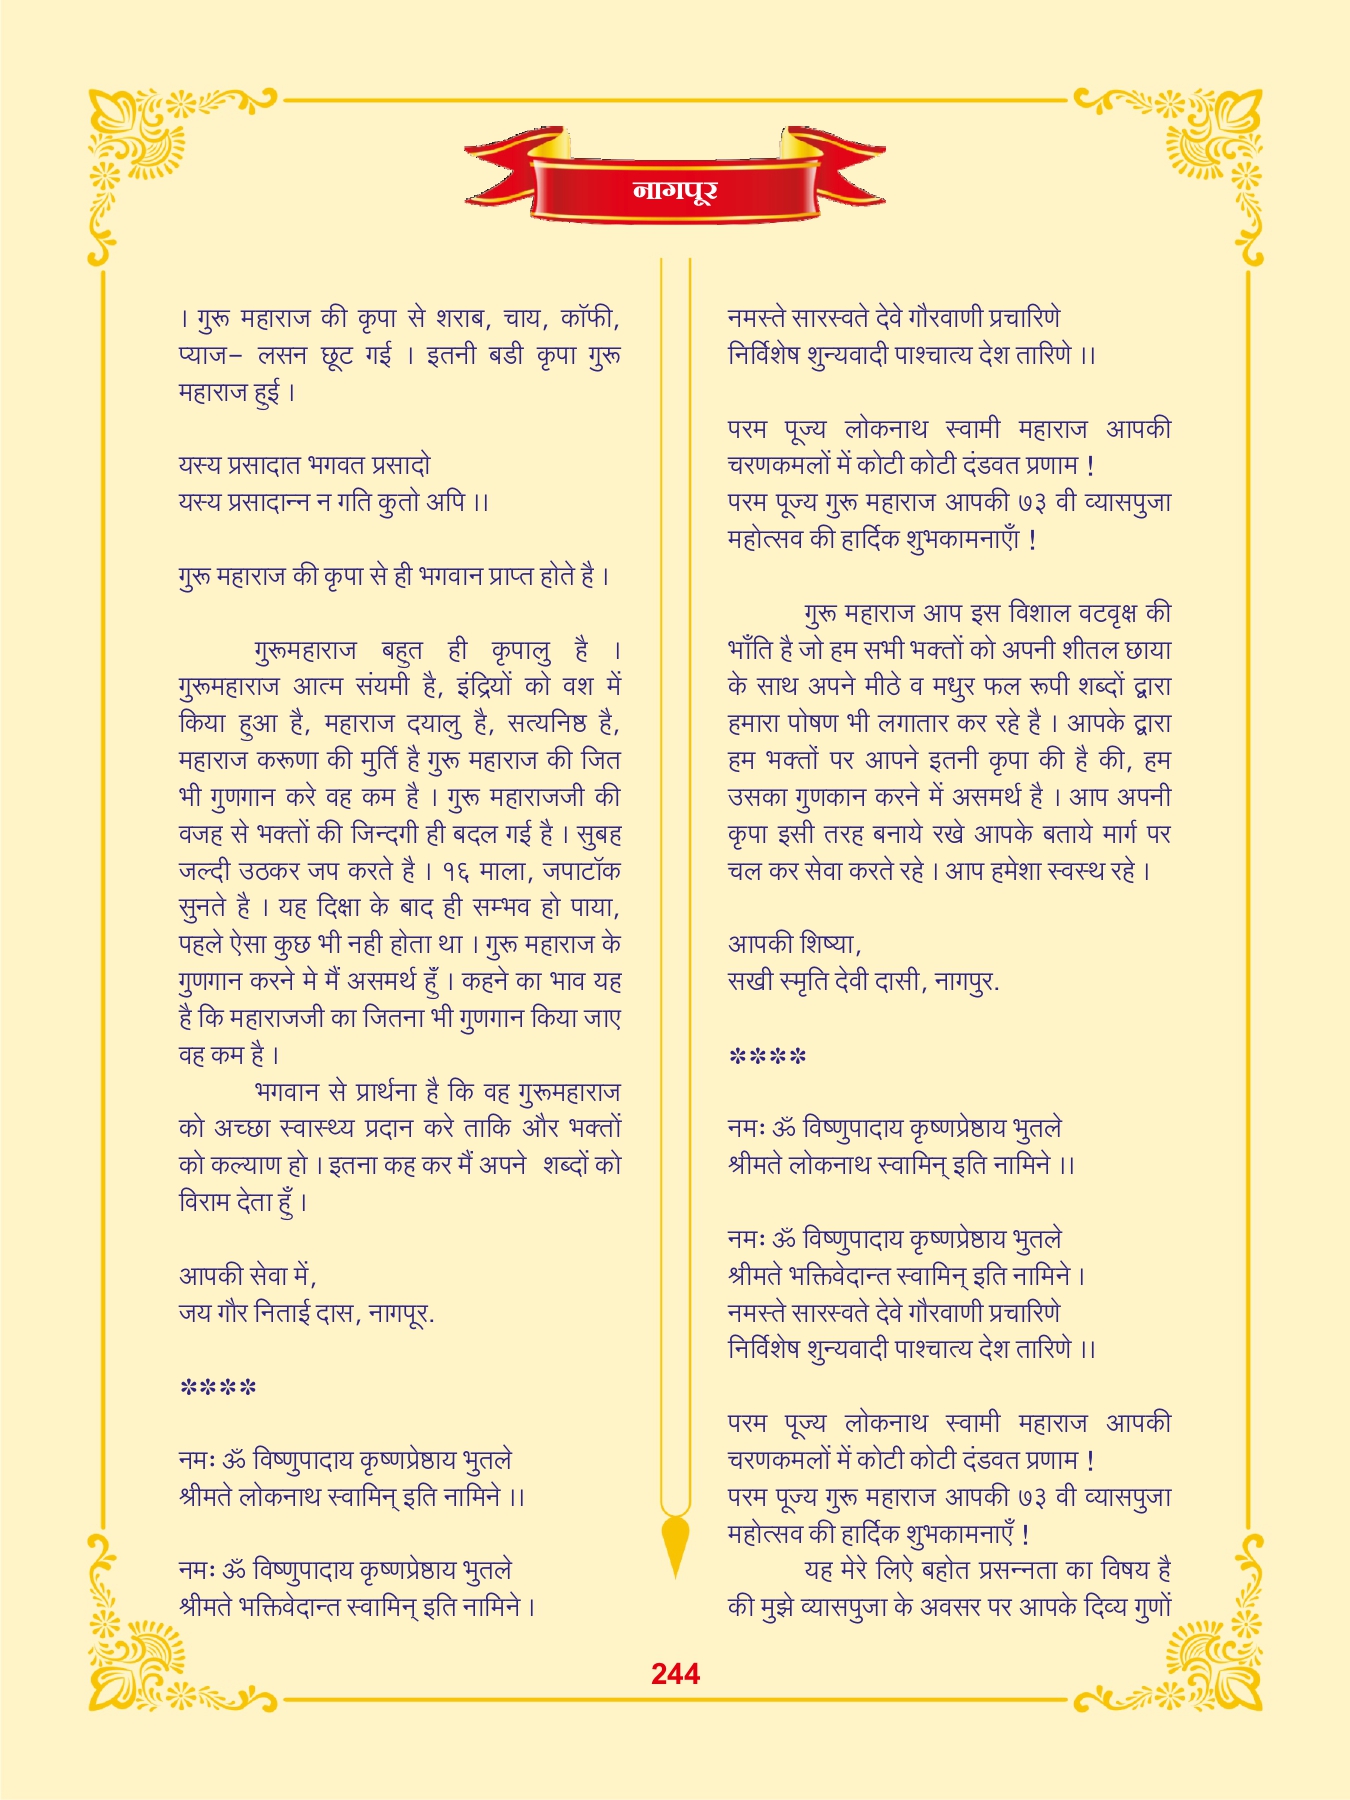 नागपूर
। गुरू महाराज की कृपा से शराब, चाय, कॉफी,
प्याज– लसन छूट गई । इतनी बडी कृपा गुरू
महाराज हुई ।
यस्य प्रसादात भगवत प्रसादो
यस्य प्रसादान्न न गति कुतो अपि ।।
गुरू महाराज की कृपा से ही भगवान प्राप्त होते है ।
गुरूमहाराज बहुत ही कृपालु है ।
गुरूमहाराज आत्म संयमी है, इंद्रियों को वश में
किया हुआ है, महाराज दयालु है, सत्यनिष्ठ है,
महाराज करूणा की मुर्ति है गुरू महाराज की जित
भी गुणगान करे वह कम है । गुरू महाराजजी की
वजह से भक्तों की जिन्दगी ही बदल गई है । सुबह
जल्दी उठकर जप करते है । १६ माला, जपाटॉक
सुनते है । यह दिक्षा के बाद ही सम्भव हो पाया,
पहले ऐसा कुछ भी नही होता था । गुरू महाराज के
गुणगान करने मे मैं असमर्थ हुँ । कहने का भाव यह
है कि महाराजजी का जितना भी गुणगान किया जाए
वह कम है ।
भगवान से प्रार्थना है कि वह गुरूमहाराज
को अच्छा स्वास्थ्य प्रदान करे ताकि और भक्तों
को कल्याण हो । इतना कह कर मैं अपने शब्दों को
विराम देता हुँ ।
आपकी सेवा में,
जय गौर निताई दास, नागपूर.
****
नमः ॐ विष्णुपादाय कृष्णप्रेष्ठाय भुतले
श्रीमते लोकनाथ स्वामिन् इति नामिने ।।
नमः ॐ विष्णुपादाय कृष्णप्रेष्ठाय भुतले
श्रीमते भक्तिवेदान्त स्वामिन् इति नामिने ।
नमस्ते सारस्वते देवे गौरवाणी प्रचारिणे
निर्विशेष शुन्यवादी पाश्चात्य देश तारिणे ।।
परम पूज्य लोकनाथ स्वामी महाराज आपकी
चरणकमलों में कोटी कोटी दंडवत प्रणाम !
परम पूज्य गुरू महाराज आपकी ७३ वी व्यासपुजा
महोत्सव की हार्दिक शुभकामनाएँा !
गुरू महाराज आप इस विशाल वटवृक्ष की
भाँति है जो हम सभी भक्तों को अपनी शीतल छाया
के साथ अपने मीठे व मधुर फल रूपी शब्दों द्वारा
हमारा पोषण भी लगातार कर रहे है । आपके द्वारा
हम भक्तों पर आपने इतनी कृपा की है की, हम
उसका गुणकान करने में असमर्थ है । आप अपनी
कृपा इसी तरह बनाये रखे आपके बताये मार्ग पर
चल कर सेवा करते रहे । आप हमेशा स्वस्थ रहे ।
आपकी शिष्या,
सखी स्मृति देवी दासी, नागपुर.
****
नमः ॐ विष्णुपादाय कृष्णप्रेष्ठाय भुतले
श्रीमते लोकनाथ स्वामिन् इति नामिने ।।
नमः ॐ विष्णुपादाय कृष्णप्रेष्ठाय भुतले
श्रीमते भक्तिवेदान्त स्वामिन् इति नामिने ।
नमस्ते सारस्वते देवे गौरवाणी प्रचारिणे
निर्विशेष शुन्यवादी पाश्चात्य देश तारिणे ।।
परम पूज्य लोकनाथ स्वामी महाराज आपकी
चरणकमलों में कोटी कोटी दंडवत प्रणाम !
परम पूज्य गुरू महाराज आपकी ७३ वी व्यासपुजा
महोत्सव की हार्दिक शुभकामनाएँ !
यह मेरे लिऐ बहोत प्रसन्नता का विषय है
की मुझे व्यासपुजा के अवसर पर आपके दिव्य गुणों
244